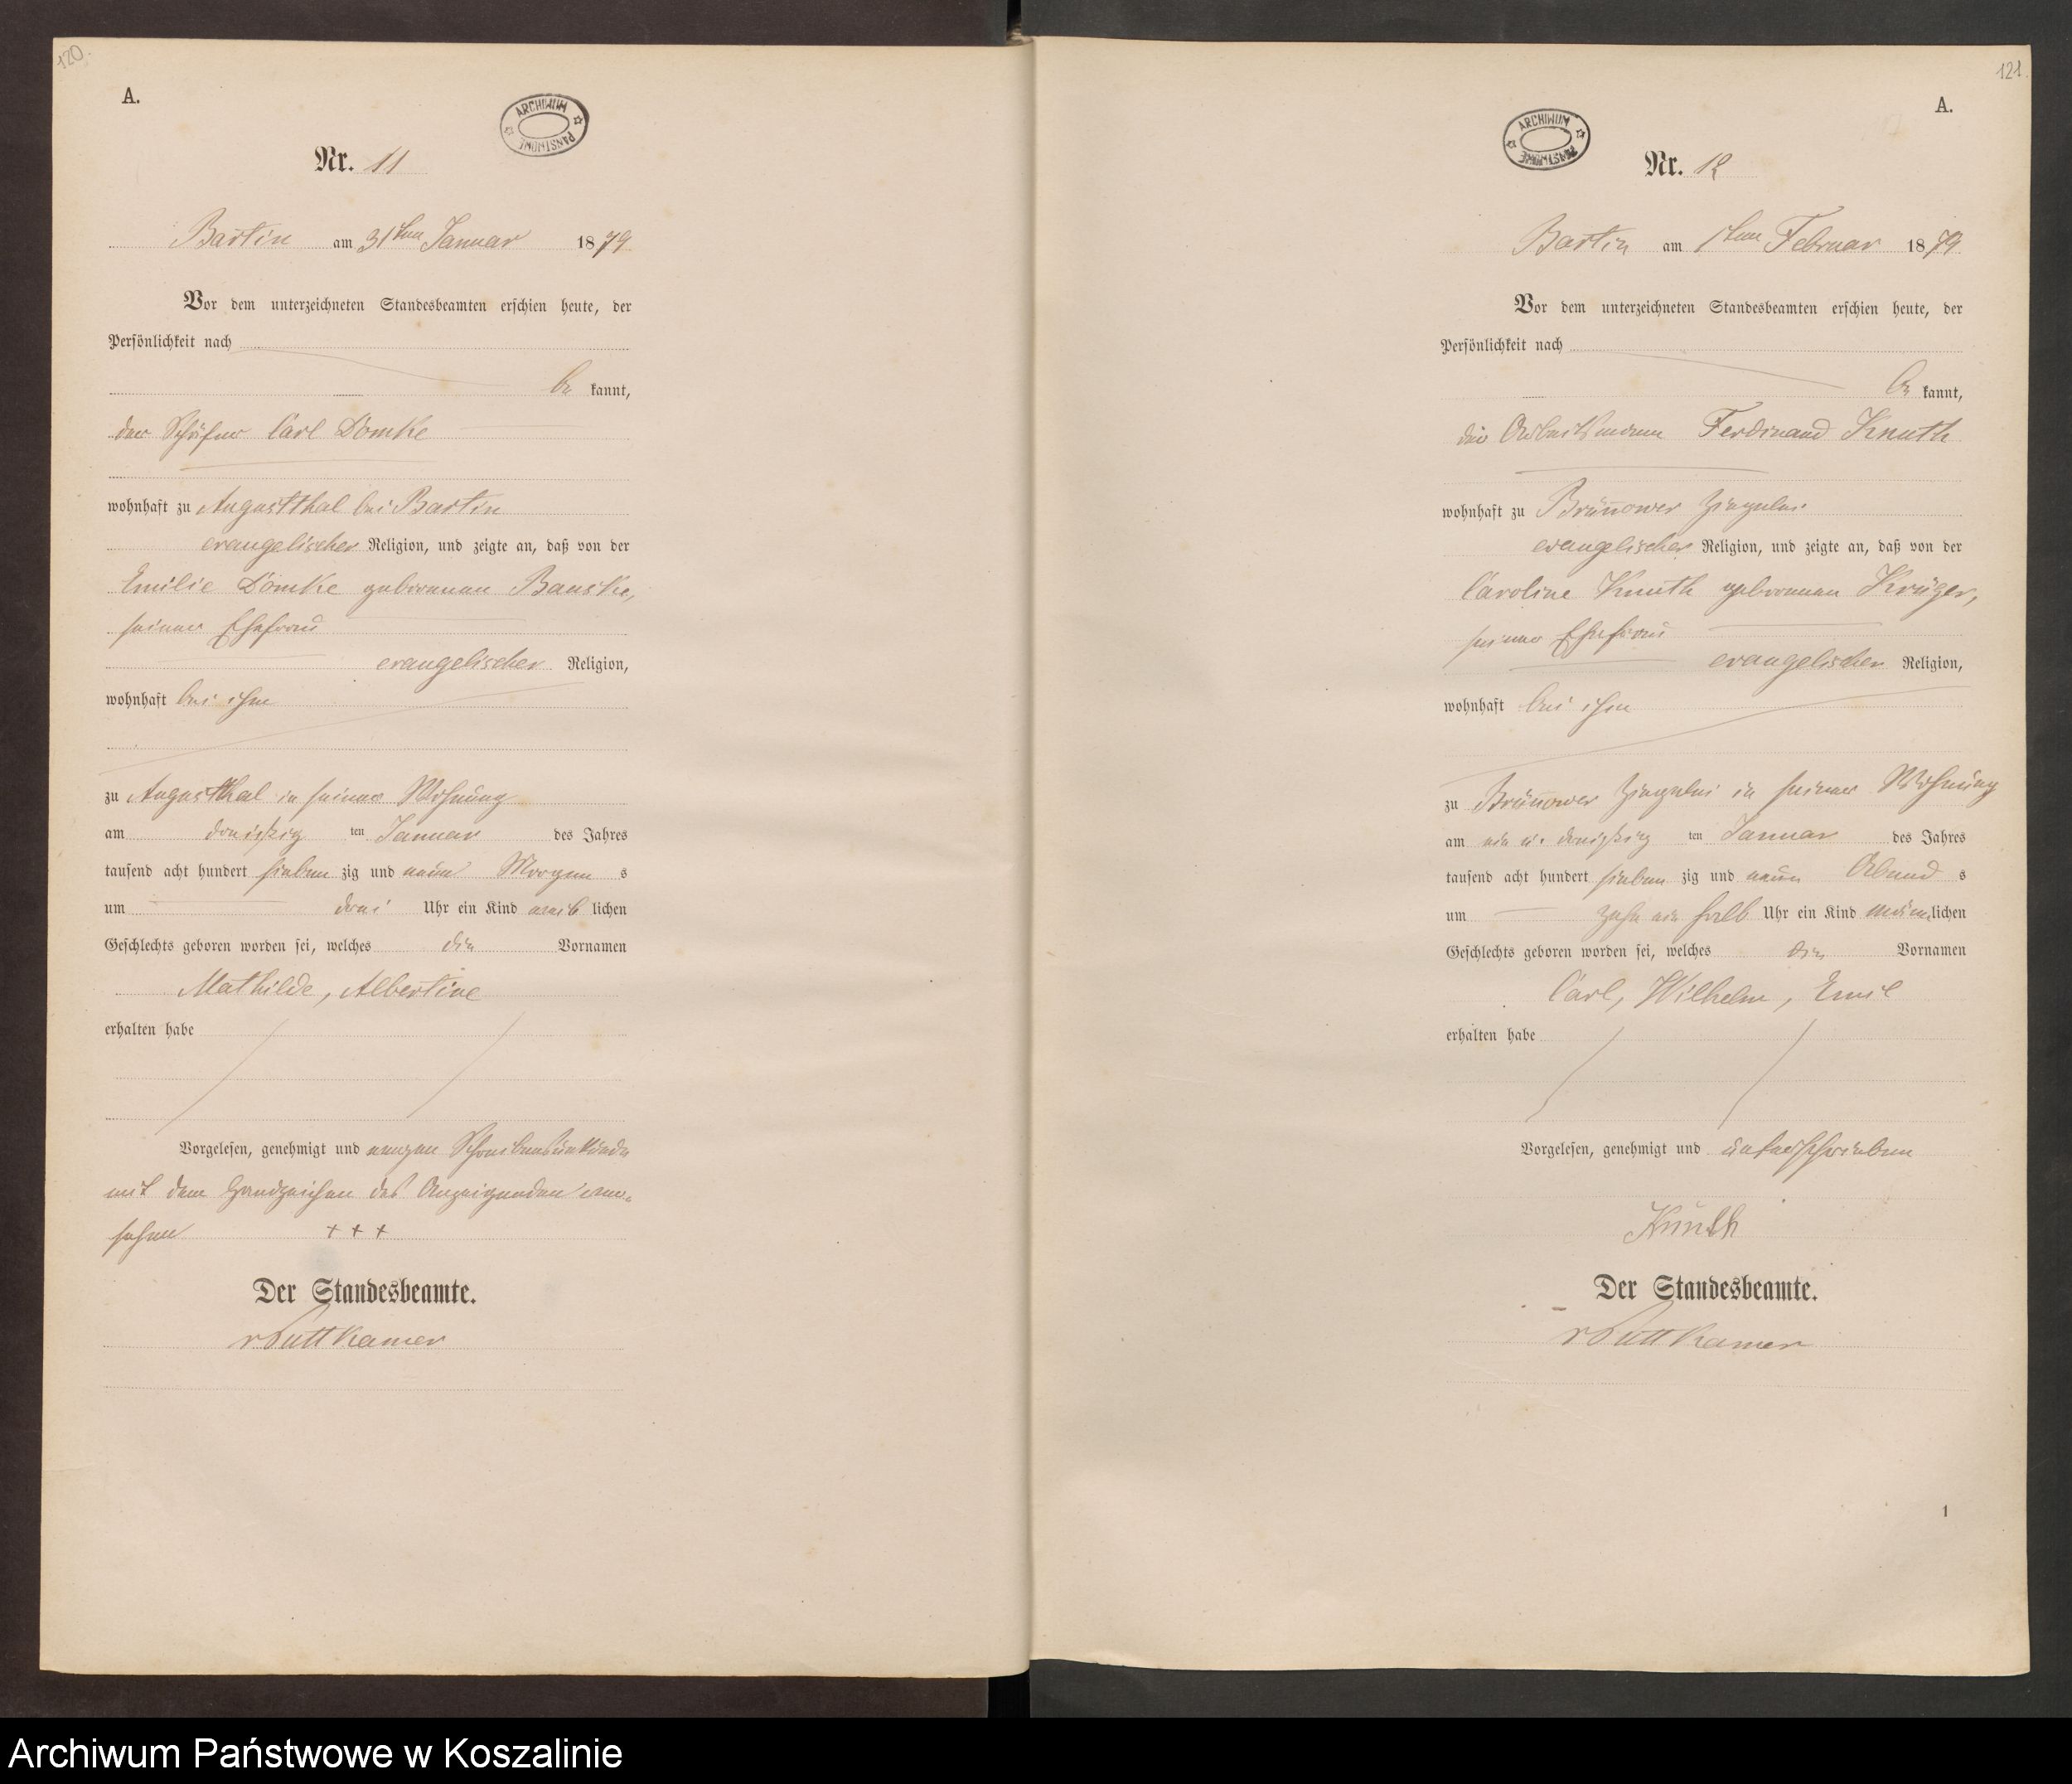 120.
A.
ARCHIWUM PAŃSTWOWE
Nr. 11
Bartin am 31ten Januar 1879
Vor dem unterzeichneten Standesbeamten erschien heute, der
Persönlichkeit nach
be kannt,
der Schäfer Carl Dömke
wohnhaft zu Augustthal bei Bartin
evangelischer Religion, und zeigte an, daß von der
Emilie Dömke geborenen Bauske,
seiner Ehefrau
evangelischer Religion,
wohnhaft bei ihm
zu Augustthal in seiner Wohnung
am dreißig ten Januar des Jahres
tausend acht hundert sieben zig und neun Morgen s
um drei Uhr ein Kind weib lichen
Geschlechts geboren worden sei, welches die Vornamen
Mathilde, Albertine
erhalten habe
Vorgelesen, genehmigt und wegen Schreibensunkunde
mit dem Handzeichen des Anzeigenden ver-
sehen + + +
Der Standesbeamte.
vPuttkamer
121.
A.
ARCHIWUM PAŃSTWOWE
Nr. 12
Bartin am 1ten Februar 1879
Vor dem unterzeichneten Standesbeamten erschien heute, der
Persönlichkeit nach
be kannt,
der Arbeitsmann Ferdinand Knuth
wohnhaft zu Brünnower Ziegelei
evangelischer Religion, und zeigte an, daß von der
Caroline Knuth geborenen Krüger,
seiner Ehefrau
evangelischer Religion,
wohnhaft bei ihm
zu Brünnower Ziegelei in seiner Wohnung
am ein u. dreißig ten Januar des Jahres
tausend acht hundert sieben zig und neun Abend s
um zehn ein halb Uhr ein Kind männlichen
Geschlechts geboren worden sei, welches die Vornamen
Carl, Wilhelm, Emil
erhalten habe
Vorgelesen, genehmigt und unterschrieben
Knuth
Der Standesbeamte.
vPuttkamer
1
Archiwum Państwowe w Koszalinie